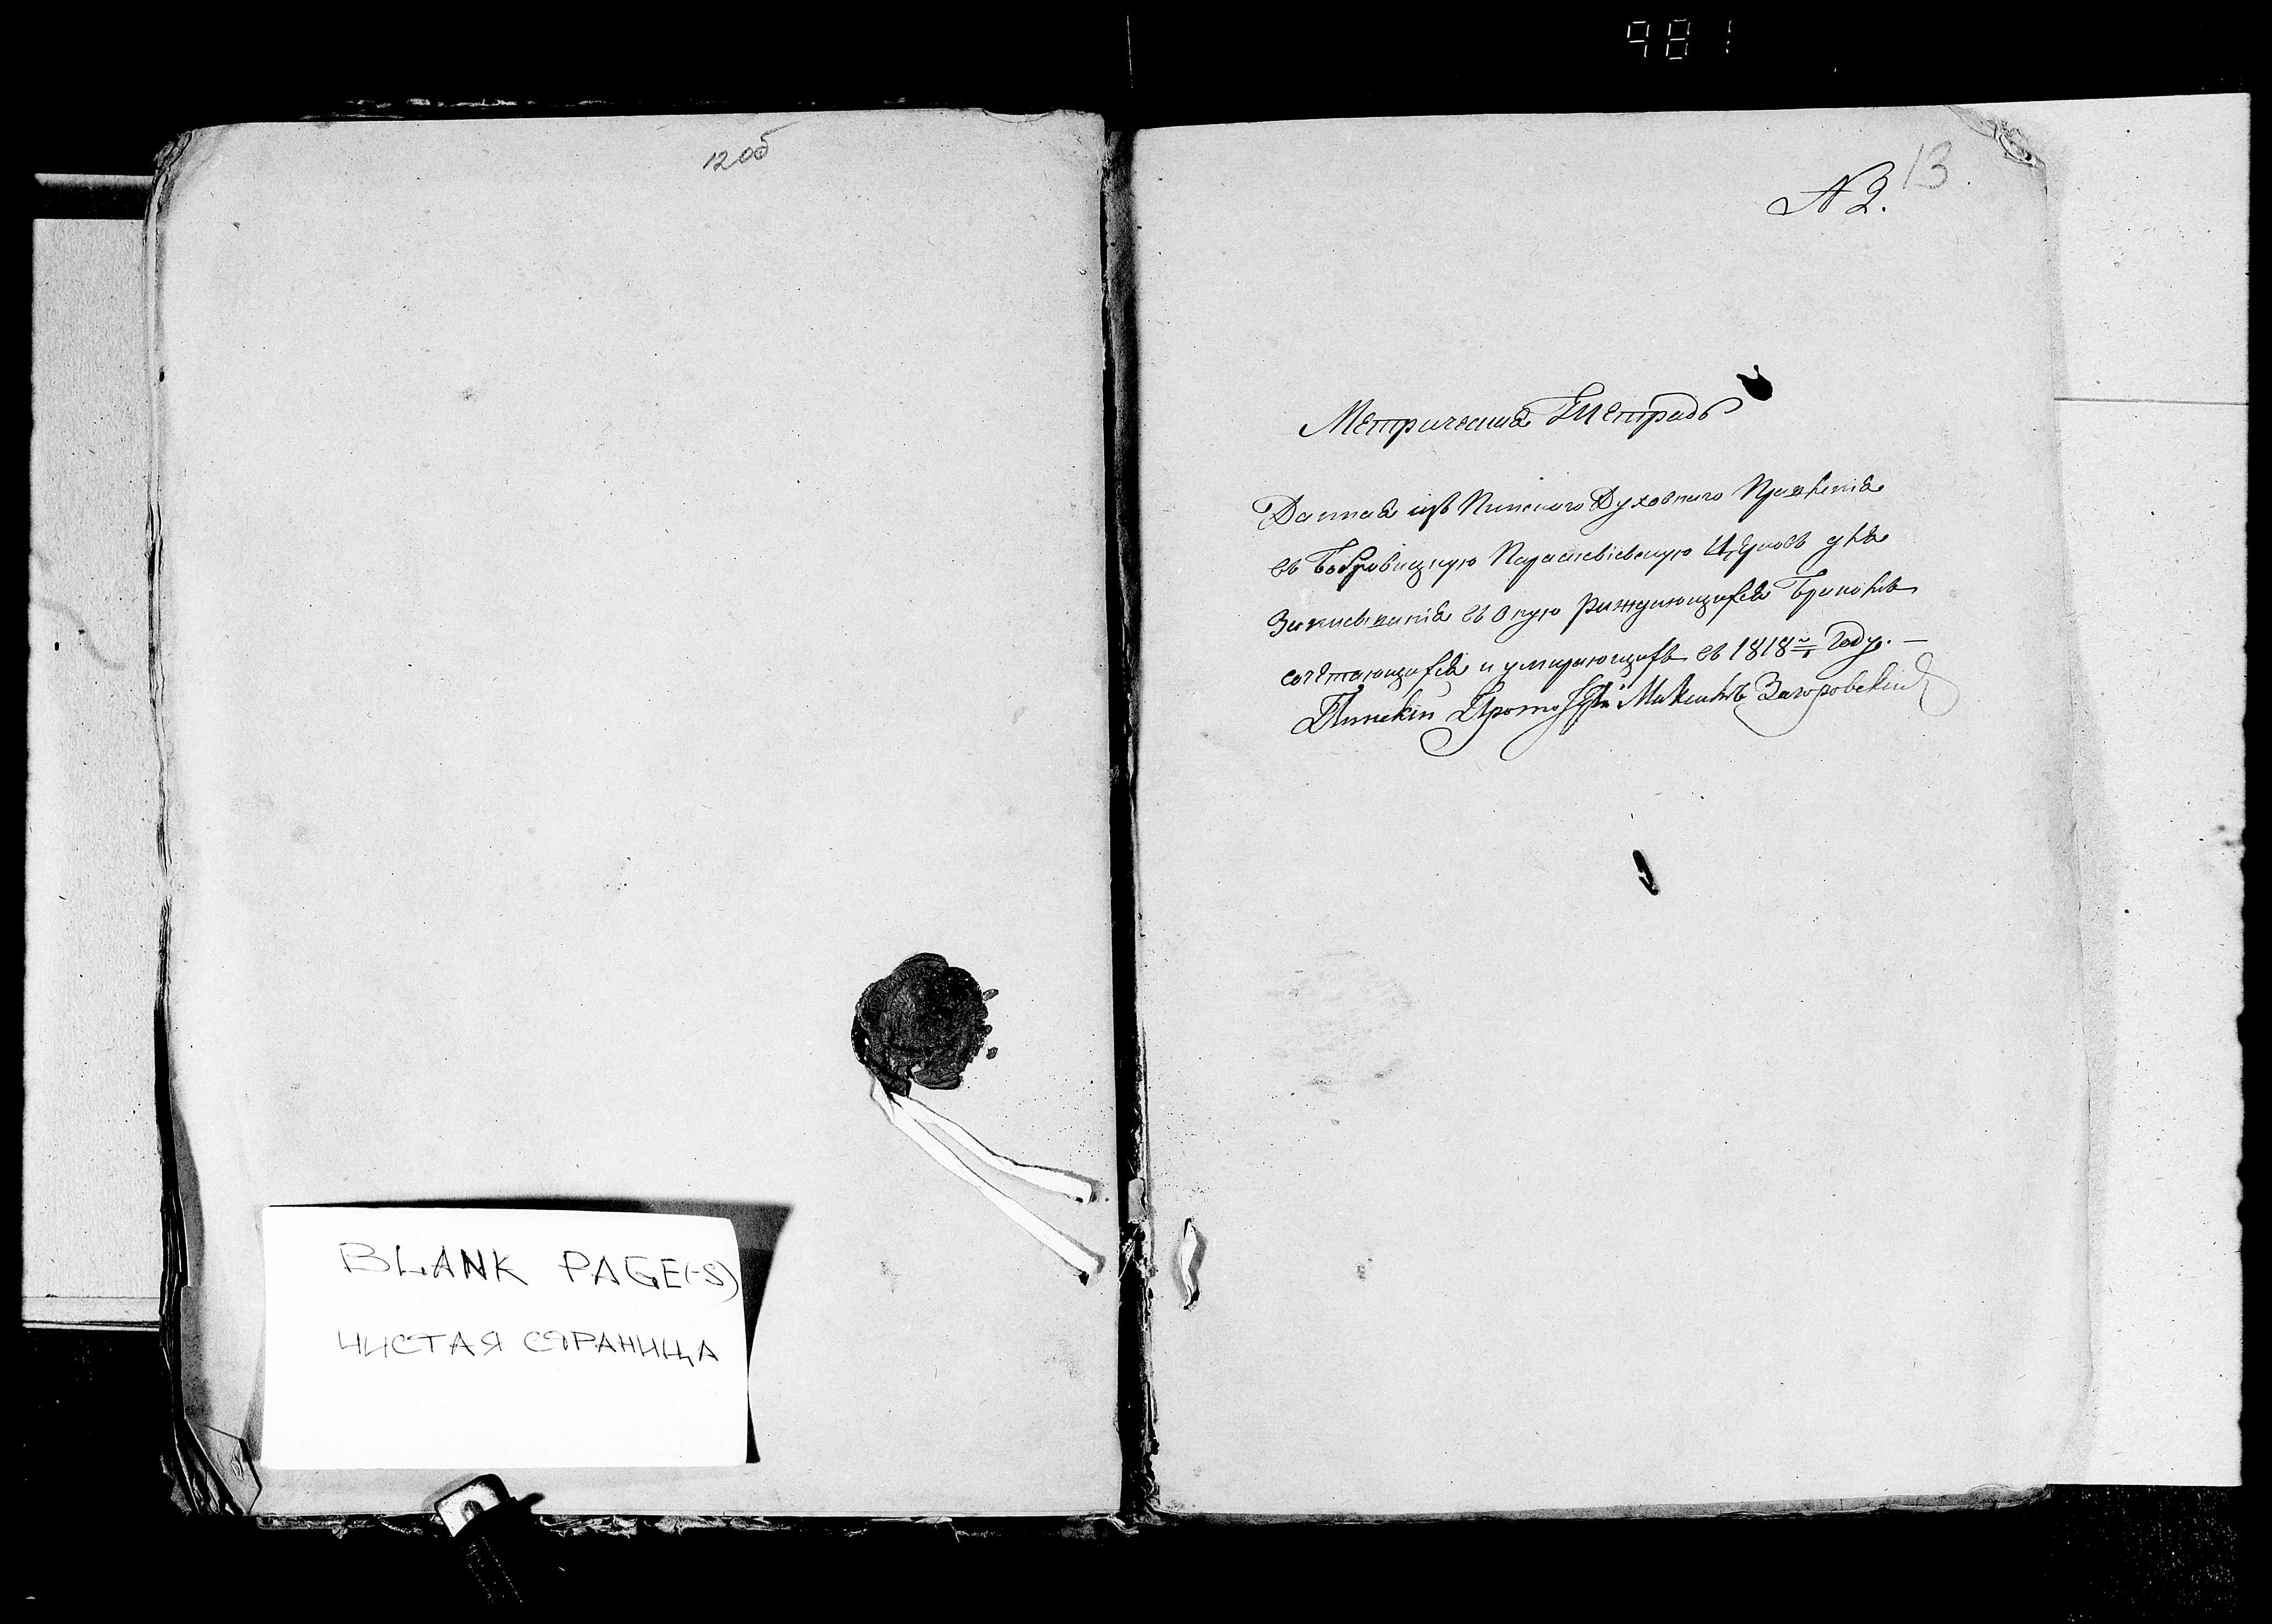 981
12об
BLANK PAGE(-S)
ЧИСТАЯ СТРАНИЦА
13
N 2.
Метрическая Тетрадь
Данная изъ Пинского Духовного Правленія
въ Бобровицкую Параскевіевскую Церковь для
Записыванія въ оную раждающихся Бракомъ
сочетающихся и умирающихъ въ 1818м Году. —
Пинскій Максимъ Загоровскій